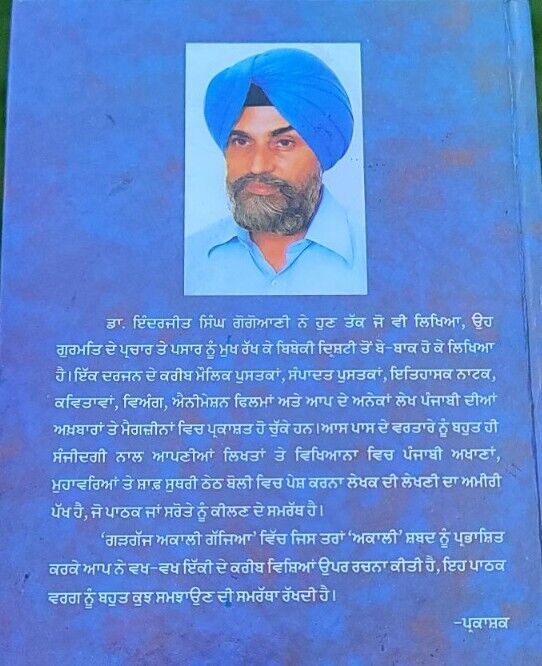 ਡਾ. ਇੰਦਰਜੀਤ ਸਿੰਘ ਗੋਗੋਆਣੀ ਨੇ ਹੁਣ ਤੱਕ ਜੋ ਵੀ ਲਿਖਿਆ, ਉਹ
ਗੁਰਮਤਿ ਦੇ ਪ੍ਰਚਾਰ ਤੇ ਪਸਾਰ ਨੂੰ ਮੁਖ ਰੱਖ ਕੇ ਬਿਬੇਕੀ ਦ੍ਰਿਸ਼ਟੀ ਤੋਂ ਬੇ-ਬਾਕ ਹੋ ਕੇ ਲਿਖਿਆ
ਹੈ। ਇੱਕ ਦਰਜਨ ਦੇ ਕਰੀਬ ਮੌਲਿਕ ਪੁਸਤਕਾਂ, ਸੰਪਾਦਤ ਪੁਸਤਕਾਂ, ਇਤਿਹਾਸਕ ਨਾਟਕ,
ਕਵਿਤਾਵਾਂ, ਵਿਅੰਗ, ਐਨੀਮੇਸ਼ਨ ਫਿਲਮਾਂ ਅਤੇ ਆਪ ਦੇ ਅਨੇਕਾਂ ਲੇਖ ਪੰਜਾਬੀ ਦੀਆਂ
ਅਖ਼ਬਾਰਾਂ ਤੇ ਮੈਗਜ਼ੀਨਾਂ ਵਿਚ ਪ੍ਰਕਾਸ਼ਤ ਹੋ ਚੁੱਕੇ ਹਨ। ਆਸ ਪਾਸ ਦੇ ਵਰਤਾਰੇ ਨੂੰ ਬਹੁਤ ਹੀ
ਸੰਜੀਦਗੀ ਨਾਲ ਆਪਣੀਆਂ ਲਿਖਤਾਂ ਤੇ ਵਿਖਿਆਨਾ ਵਿਚ ਪੰਜਾਬੀ ਅਖਾਣਾਂ,
ਮੁਹਾਵਰਿਆਂ ਤੇ ਸ਼ਾਫ਼ ਸੁਥਰੀ ਠੇਠ ਬੋਲੀ ਵਿਚ ਪੇਸ਼ ਕਰਨਾ ਲੇਖਕ ਦੀ ਲੇਖਣੀ ਦਾ ਅਮੀਰੀ
ਪੱਖ ਹੈ, ਜੋ ਪਾਠਕ ਜਾਂ ਸਰੋਤੇ ਨੂੰ ਕੀਲਣ ਦੇ ਸਮਰੱਥ ਹੈ।
‘ਗੜਗੱਜ ਅਕਾਲੀ ਗੱਜਿਆ’ ਵਿੱਚ ਜਿਸ ਤਰਾਂ ‘ਅਕਾਲੀ’ ਸ਼ਬਦ ਨੂੰ ਪ੍ਰਭਾਸ਼ਿਤ
ਕਰਕੇ ਆਪ ਨੇ ਵਖ-ਵਖ ਇੱਕੀ ਦੇ ਕਰੀਬ ਵਿਸ਼ਿਆਂ ਉਪਰ ਰਚਨਾ ਕੀਤੀ ਹੈ, ਇਹ ਪਾਠਕ
ਵਰਗ ਨੂੰ ਬਹੁਤ ਕੁਝ ਸਮਝਾਉਣ ਦੀ ਸਮਰੱਥਾ ਰੱਖਦੀ ਹੈ।
-ਪ੍ਰਕਾਸ਼ਕ